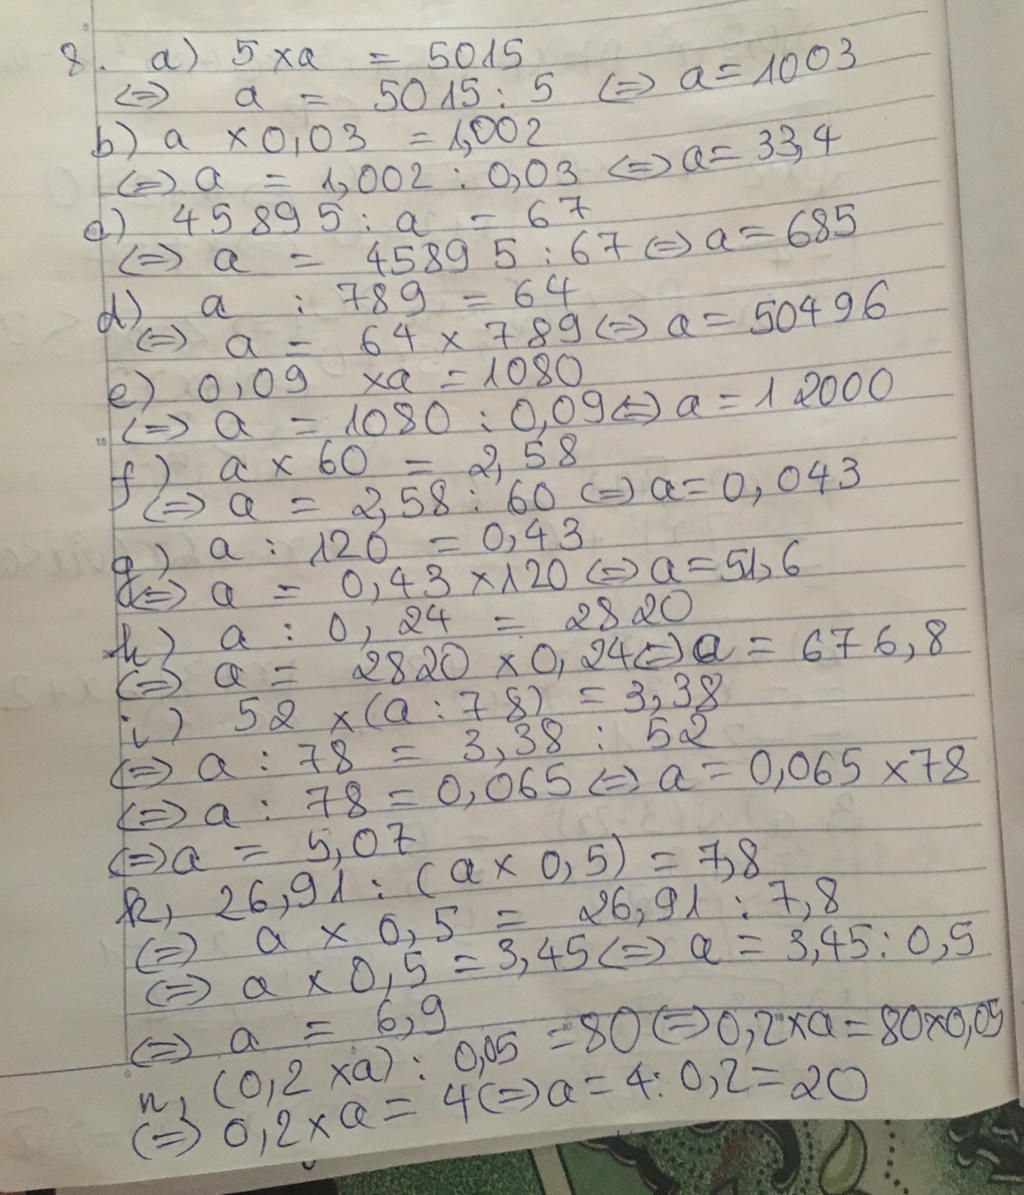 8. a) 5 x a = 5015
<=> a = 5015 : 5 <=> a = 1003
b) a x 0,03 = 1,002
<=> a = 1,002 : 0,03 <=> a = 33,4
c) 45895 : a = 67
<=> a = 45895 : 67 <=> a = 685
d) a : 789 = 64
<=> a = 64 x 789 <=> a = 50496
e) 0,09 x a = 1080
<=> a = 1080 : 0,09 <=> a = 12000
f) a x 60 = 2,58
<=> a = 2,58 : 60 <=> a = 0,043
g) a : 120 = 0,43
<=> a = 0,43 x 120 <=> a = 51,6
h) a : 0,24 = 2820
<=> a = 2820 x 0,24 <=> a = 676,8
i) 52 x (a : 78) = 3,38
<=> a : 78 = 3,38 : 52
<=> a : 78 = 0,065 <=> a = 0,065 x 78
<=> a = 5,07
k, 26,91 : (a x 0,5) = 7,8
<=> a x 0,5 = 26,91 : 7,8
<=> a x 0,5 = 3,45 <=> a = 3,45 : 0,5
<=> a = 6,9
n, (0,2 x a) : 0,05 = 80 <=> 0,2 x a = 80 x 0,05
<=> 0,2 x a = 4 <=> a = 4 : 0,2 = 20